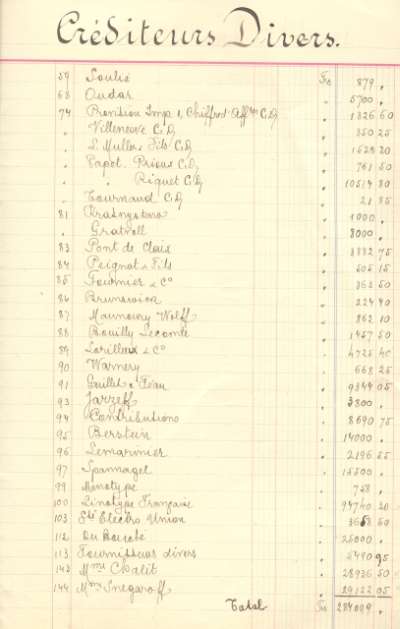 Créditeurs Divers.
59 Soulié Frs 879 ,
68 Oudar " 5700 ,
74 Provision Imp 1, Chiffrot Affres C.D " 1326 60
" Villeneuve C.D " 350 25
" L. Muller Fils C.D " 1528 20
" Papot Prieux C.D " 761 50
" " Riquet C.D " 10514 80
" Tournaud C.D " 21 85
81 " 1000 ,
" Gratvoll " 8000 ,
83 Pont de Claix " 75
84 Peignot & Fils " 505 15
85 Fournier & Co " 362 50
86 Brunswick " 224 40
87 Maunoury Wolff " 862 10
88 Bouilly Lecomte " 1457 50
89 Lorilleux & Co " 4725 40
90 Warnery " 668 25
91 " 9344 05
93 Jarzeff " 3800 ,
94 Contributions " 8690 75
95 Berstein " 14000 ,
96 Lemarinier " 2196 55
97 Spannagel " 15500 ,
99 Monotype " 758 ,
100 Linotype Française " 94740 20
103 Sté Electro Union " 3658 50
112 " 25000 ,
113 Fournisseurs divers " 5490 95
143 Mme Chalit " 28936 50
144 Mme Snegaroff " 29122 05
Total Frs 284009 ,